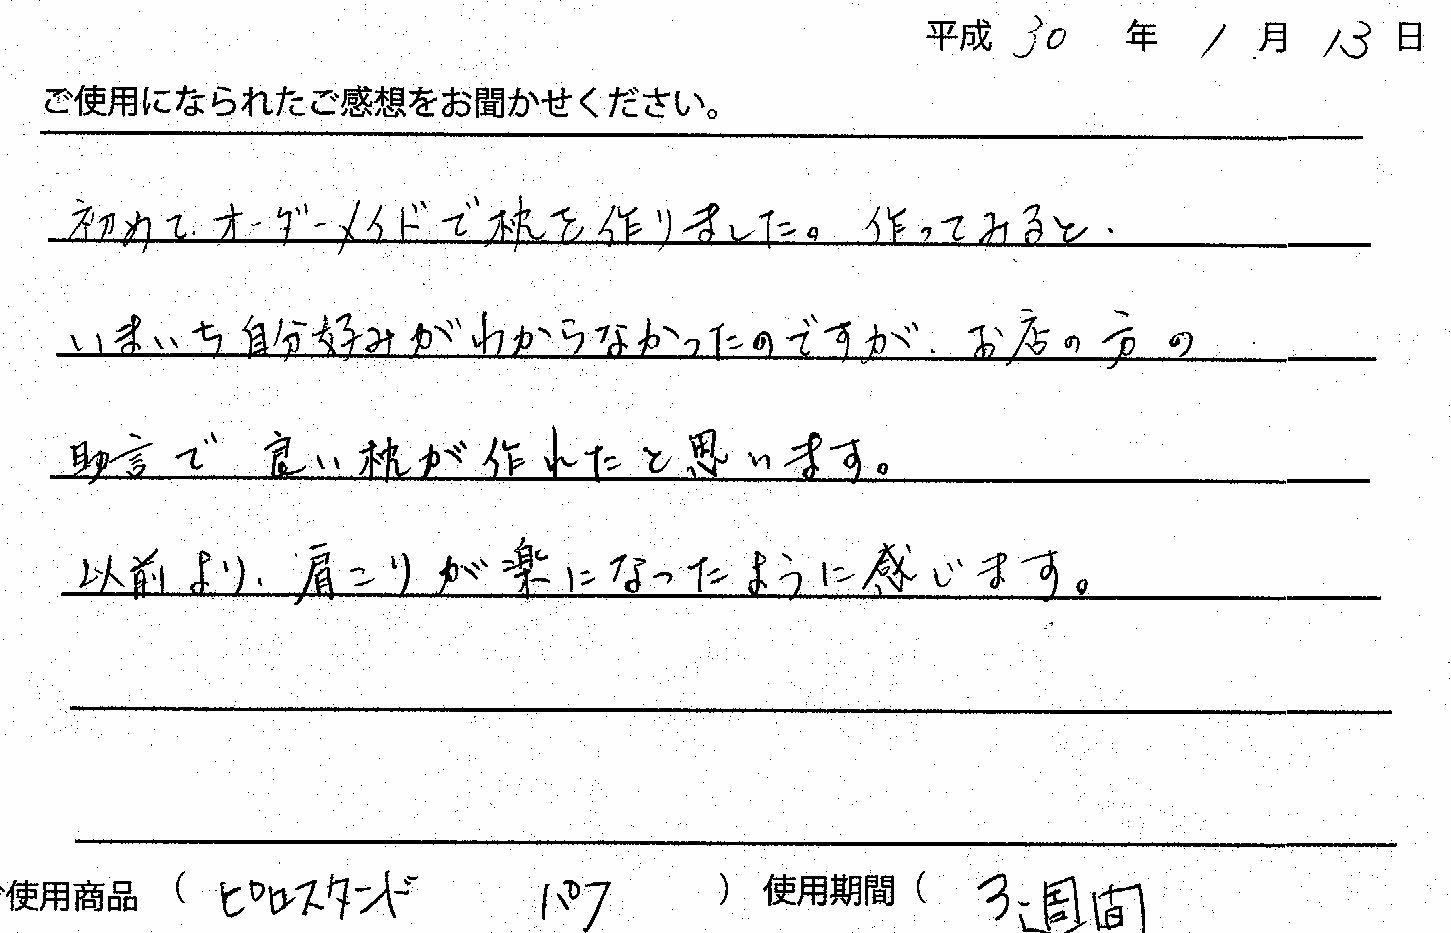 平成 30 年 1 月 13 日
ご使用になられたご感想をお聞かせください。
初めて、オーダーメイドで枕を作りました。作ってみると、
いまいち自分好みがわからなかったのですが、お店の方の
助言で 良い枕が作れたと思います。
以前より、肩こりが楽になったように感じます。
ご使用商品 ( ピロスタンド ) 使用期間 ( 3週間